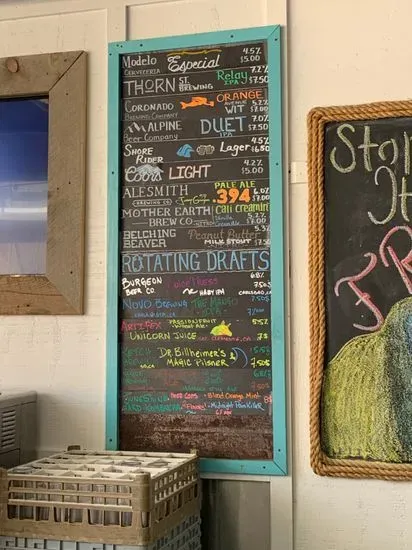 Modelo Especial 4.5%
CERVECERIA $5.00
THORN ST. BREWING Relay IPA 7.2% $7.50
CORONADO BREWING COMPANY ORANGE AVENUE WIT 5.2% $7.00
ALPINE Beer Company DUET IPA 7.0% $7.50
SHORE RIDER Lager 4.5% $6.50
Coors LIGHT 4.2% $5.00
ALESMITH BREWING CO. PALE ALE .394 6.0% $7.00
MOTHER EARTH BREW CO. Cali Creamin' Vanilla 5.2% $7.00
BELCHING BEAVER Peanut Butter MILK STOUT 5.3% $7.50
ROTATING DRAFTS
BURGEON BEER CO. Juice Press HAZY IPA 6.8% 7.50
NOVO BREWING THE MANGO IPA 7.50
ARTIFEX PASSIONFRUIT WHEAT ALE 5.5%
UNICORN JUICE SAN CLEMENTE, CA 7$
DR. Billheimer's
MAGIC Pilsner
JUNESHINE Blood Orange Mint
HARD KOMBUCHA Midnight Pain Killer
Sta
It
FR